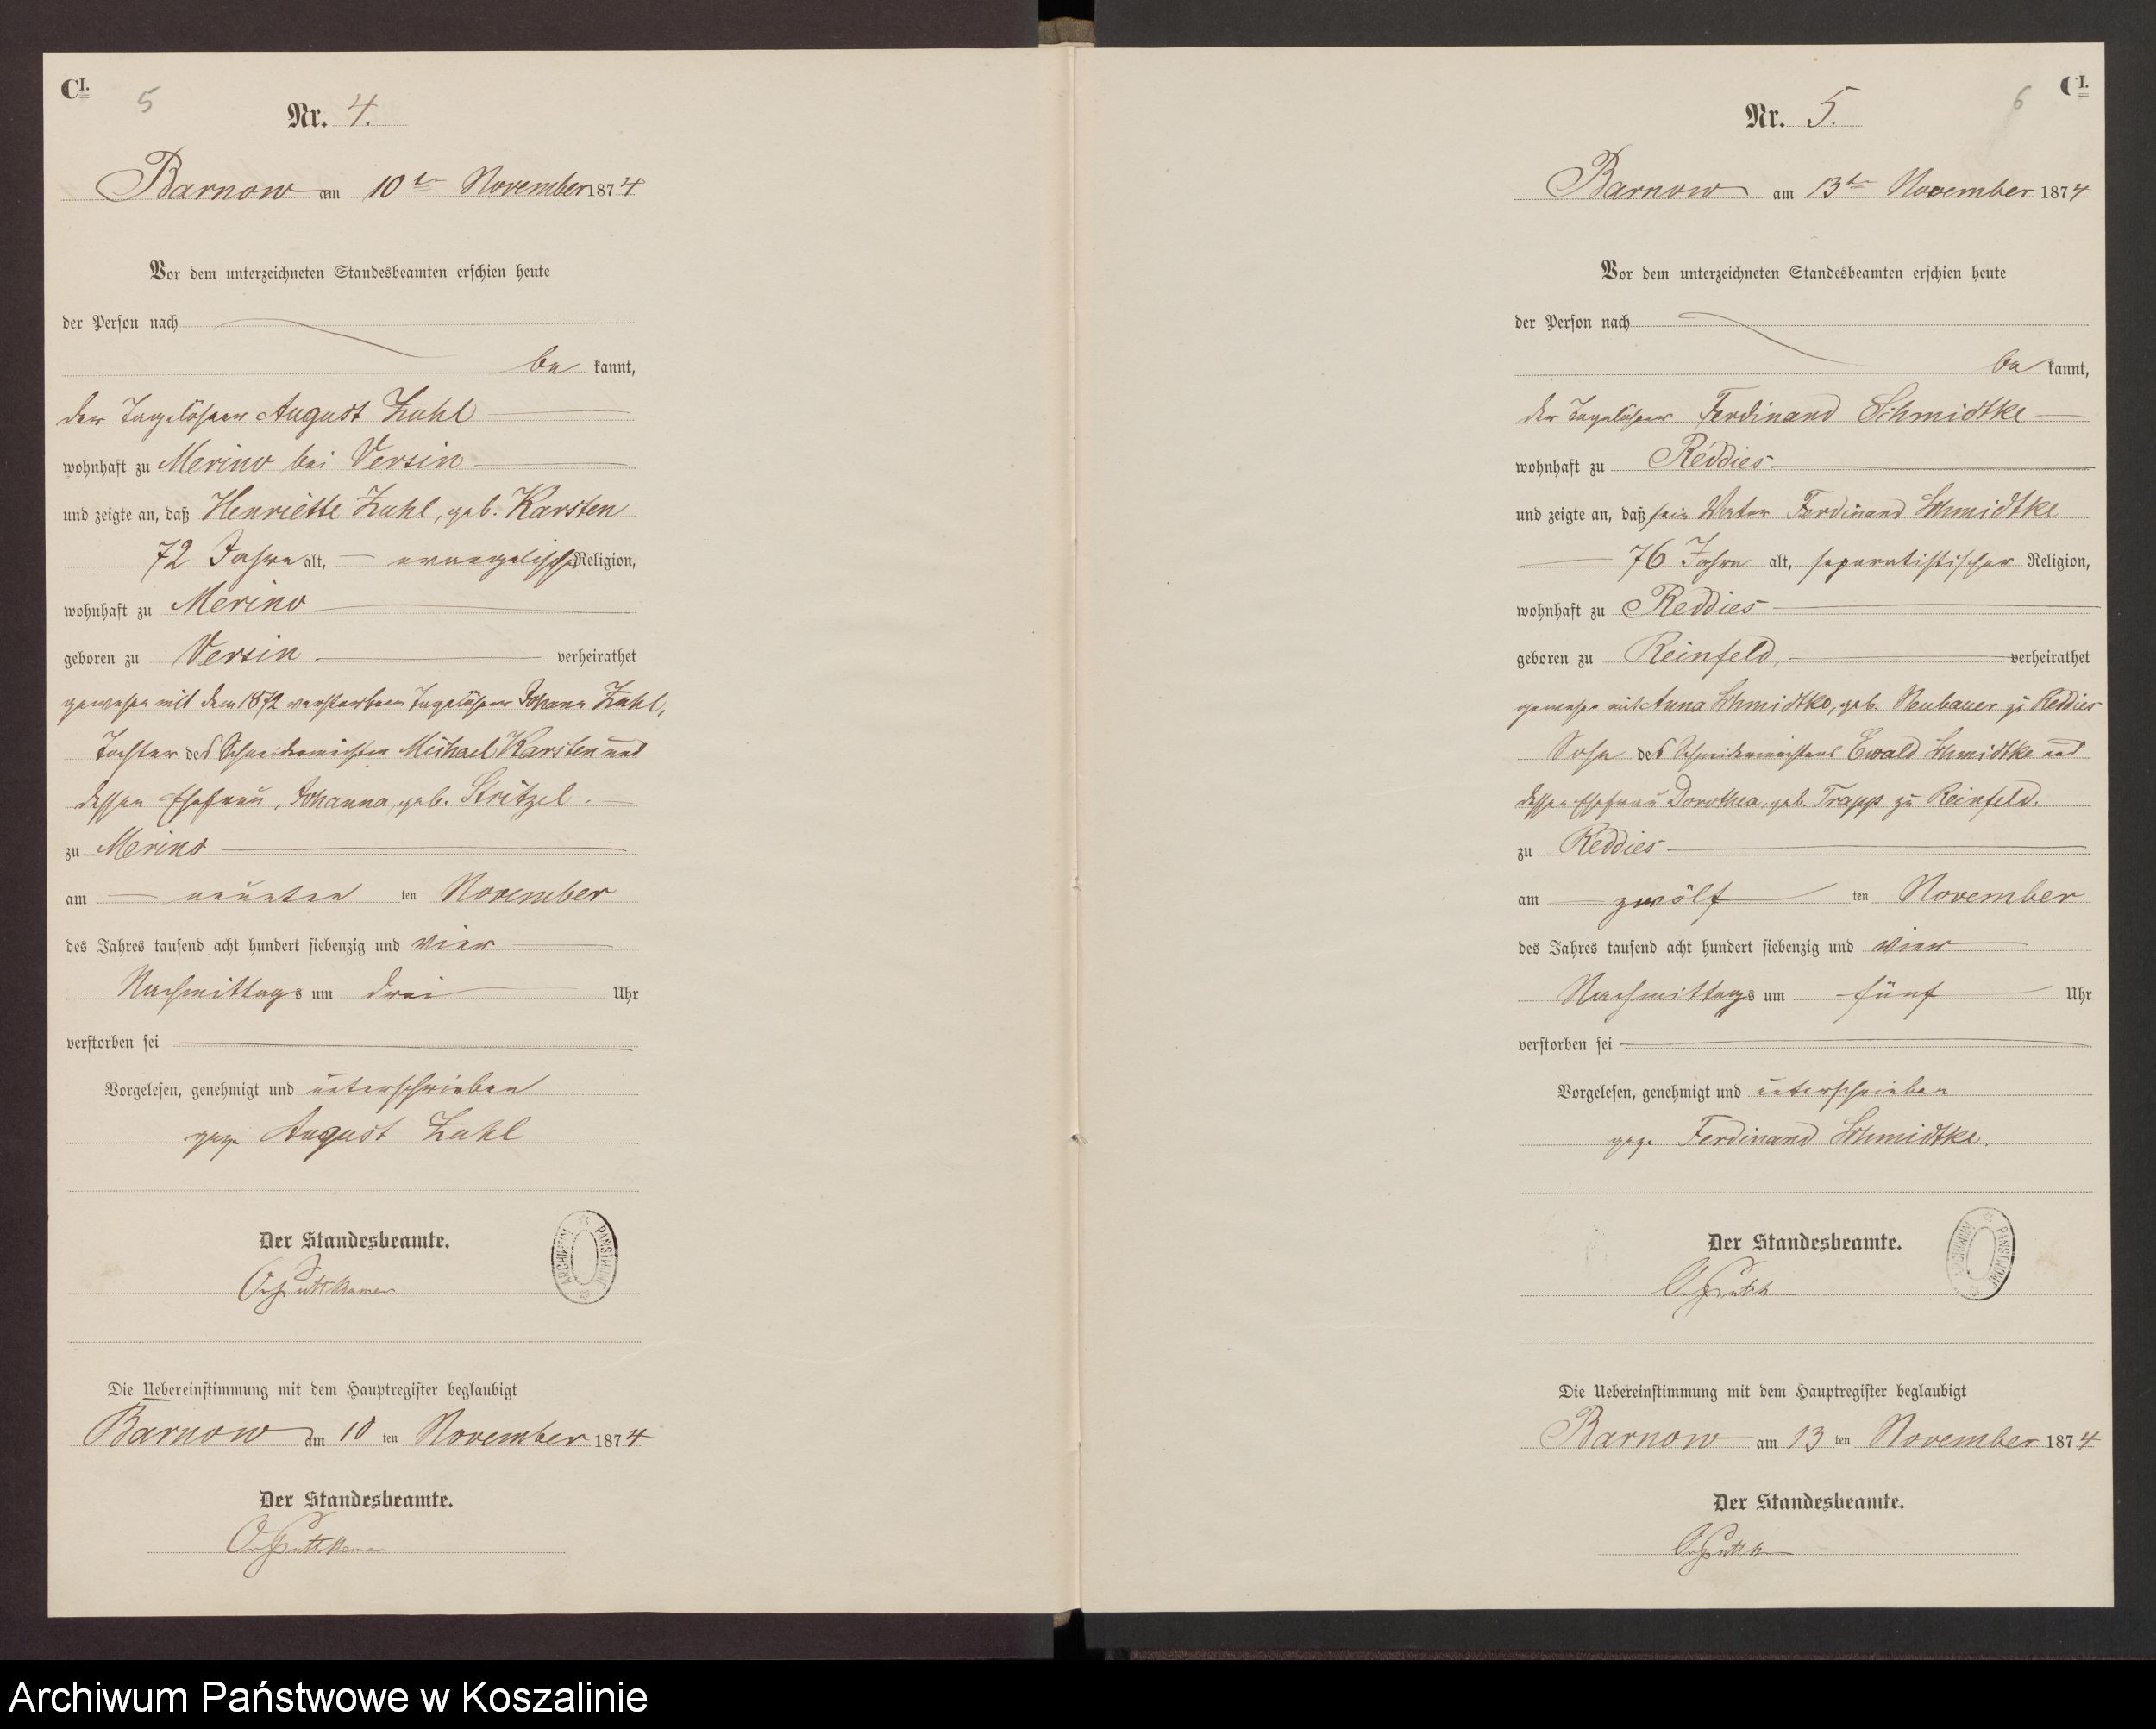 CI.
5
Nr. 4.
Barnow am 10ten November 1874
Vor dem unterzeichneten Standesbeamten erschien heute
der Person nach
be kannt,
der Tagelöhner August Zuhl
wohnhaft zu Merino bei Versin
und zeigte an, daß Henriette Zuhl, geb. Karsten
72 Jahre alt, evangelischer Religion,
wohnhaft zu Merino
geboren zu Versin verheirathet
gewesen mit dem 1872 verstorbenen Tagelöhner Johann Zuhl,
Tochter des Schneidermeister Michael Karsten und
dessen Ehefrau, Johanna, geb. Stritzel.
zu Merino
am neunten ten November
des Jahres tausend acht hundert siebenzig und vier
Nachmittags um drei Uhr
verstorben sei
Vorgelesen, genehmigt und unterschrieben
gez. August Zuhl
Der Standesbeamte.
Puttkamer
ARCHIWUM PAŃSTWOWE
Die Uebereinstimmung mit dem Hauptregister beglaubigt
Barnow am 10 ten November 1874
Der Standesbeamte.
Puttkamer
CI.
6
Nr. 5.
Barnow am 13ten November 1874
Vor dem unterzeichneten Standesbeamten erschien heute
der Person nach
be kannt,
der Tagelöhner Ferdinand Schmidtke
wohnhaft zu Reddies
und zeigte an, daß sein Vater Ferdinand Schmidtke
76 Jahre alt, separatistischer Religion,
wohnhaft zu Reddies
geboren zu Reinfeld, verheirathet
gewesen mit Anna Schmidtke, geb. Neubauer zu Reddies
Sohn des Schneidermeisters Ewald Schmidtke und
dessen Ehefrau Dorothea, geb. Trapp zu Reinfeld.
zu Reddies
am zwölf ten November
des Jahres tausend acht hundert siebenzig und vier
Nachmittags um fünf Uhr
verstorben sei
Vorgelesen, genehmigt und unterschrieben
gez. Ferdinand Schmidtke.
Der Standesbeamte.
ARCHIWUM PAŃSTWOWE
Die Uebereinstimmung mit dem Hauptregister beglaubigt
Barnow am 13 ten November 1874
Der Standesbeamte.
Archiwum Państwowe w Koszalinie